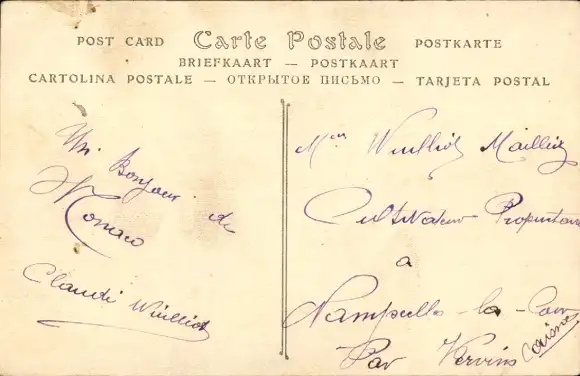 POST CARD Carte Postale POSTKARTE
BRIEFKAART — POSTKAART
CARTOLINA POSTALE — ОТКРЫТОЕ ПИСЬМО — TARJETA POSTAL
Un Bonjour de
Monaco
Claudi Wuilliot
Wuilliot Mailliez
Cultivateur Propriétaire
a
Nampcelles-la-Cour
Par Vervins